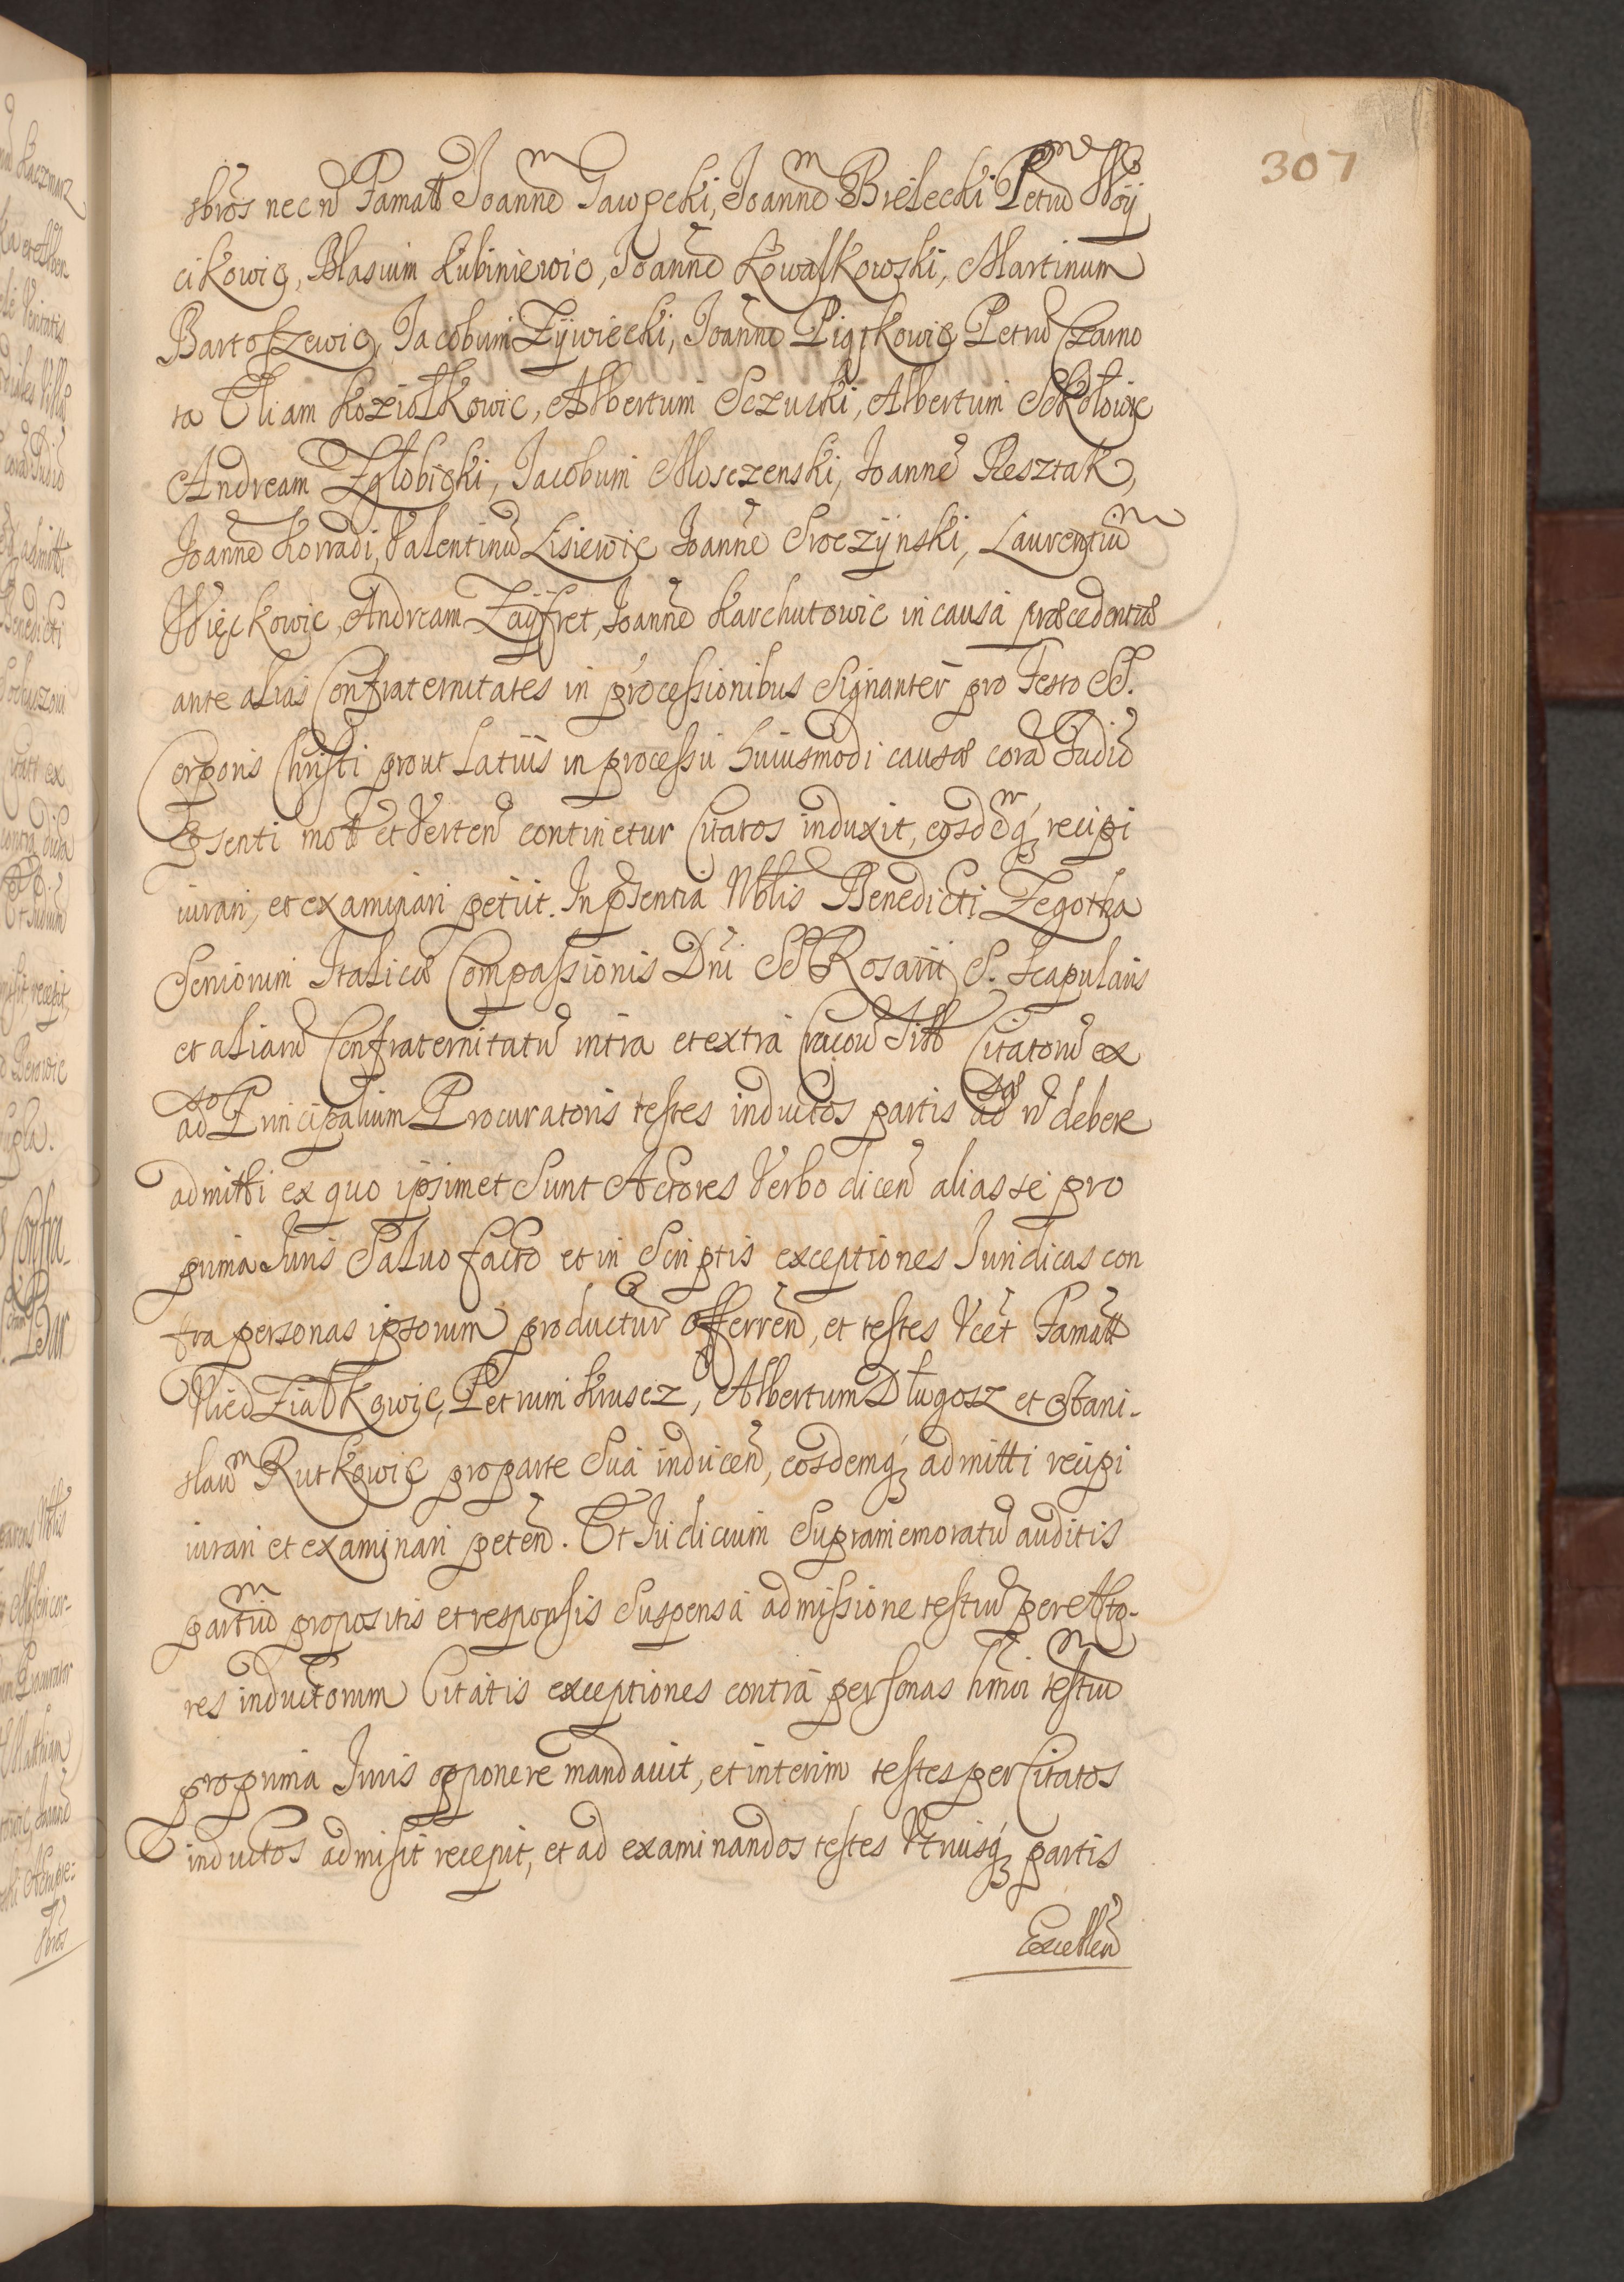 307
sbros nec n Famatt Joanne Gawęcki, Joanne Bielecki Petru Woy
cikowic, Blasium Kubiniewic, Joanne Kowalkowski, Martinum
Bartoszewic, Jacobum Zÿwiecki, Joanne Piątkowic Petru Czarno
ta Eliam Koziołkowic, Albertum Sczucki, Albertum Sokołowic
Andream Zgłobicki, Jacobum Mosczenski, Joanne Resztak,
Joanne Korradi, Valentinu Lisiewic Joanne Sroczÿnski, Laurentiu
Więckowic, Andream Zaÿfret, Joanne Karchutowic in causa præcedentiæ
ante alias Confraternitates in processionibus Signanter pro Festo SS.
Corporis Christi prout Latius in processu huiusmodi causæ cora Judio
psenti mott et Verten continetur Citatos induxit, eosdemq recipi
iurari, et examinari petiit. In psentia Nblis Benedicti Zegotha
Seniorum Italicæ Compassionis Dni SS Rosarii S. Scapularis
et aliaru Confraternitatu intra et extra Cracou Sitt Citatoru ex
adso Principalium Procuratoris testes inductos partis adsæ n debere
admitti ex quo ipsimet Sunt Actores Verbo dicen alias se pro
prima Juris Saluo facto et in Scriptis exceptiones Juridicas con
tra personas ipsorum productur offerren, et testes Vcet Famatt
Nied Ziałkowic, Petrum Kruscz, Albertum Długosz et Stani-
slaum Rutkowic pro parte Sua inducen, eosdemq admitti recipi
iurari et examinari peten. Et Judicium Supramemoratu auditis
partium propositis et responsis Suspensa admissione testiu per Acto-
res inductorum Citatis exceptiones contra personas hmoi testium
pro prima Juris opponere mandauit, et interim testes per Citatos
inductos admisit recepit, et ad examinandos testes Vtriusq partis
Excellen